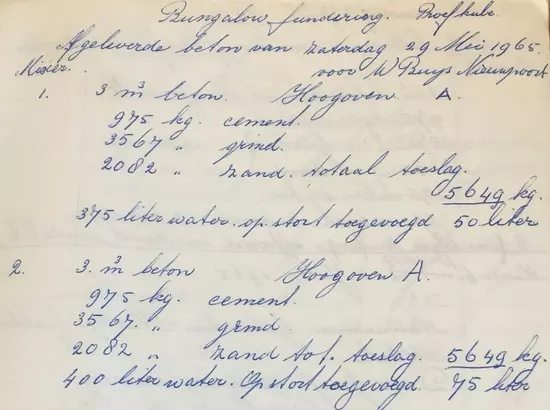 Bungalow fundering. Proefkube.
Afgeleverde beton van zaterdag 29 Mei 1965.
Mixer. voor W Buys Nieuwpoort
1. 3 m³ beton. Hoogoven A.
975 kg. cement.
3567 „ grind.
2082 „ zand. totaal toeslag.
5649 kg.
375 liter water. op stort toegevoegd 50 liter
2. 3. m³ beton Hoogoven A.
975 kg. cement.
3567. „ grind.
2082 „ zand tot. toeslag. 5649 kg.
400 liter water. Op stort toegevoegd 75 liter